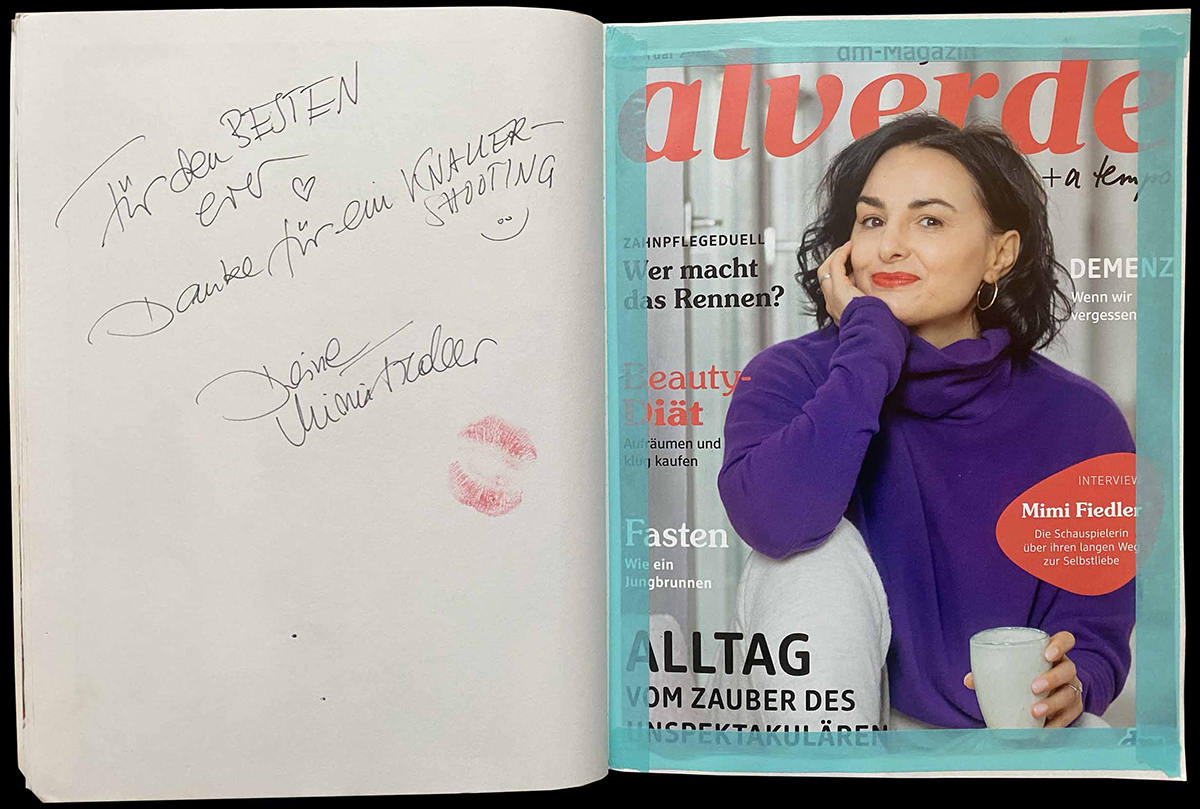 Für den BESTEN
ever ♡
Danke für ein KNALLER-
SHOOTING
Deine
Mimi Fiedler
dm-Magazin
alverde
+a tempo
ZAHNPFLEGEDUELL
Wer macht
das Rennen?
DEMENZ
Wenn wir
vergessen
Beauty-
Diät
Aufräumen und
klug kaufen
INTERVIEW
Mimi Fiedler
Die Schauspielerin
über ihren langen Weg
zur Selbstliebe
Fasten
Wie ein
Jungbrunnen
ALLTAG
VOM ZAUBER DES
UNSPEKTAKULÄREN
dm